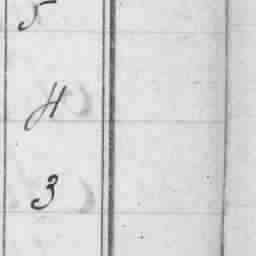 5
4
3